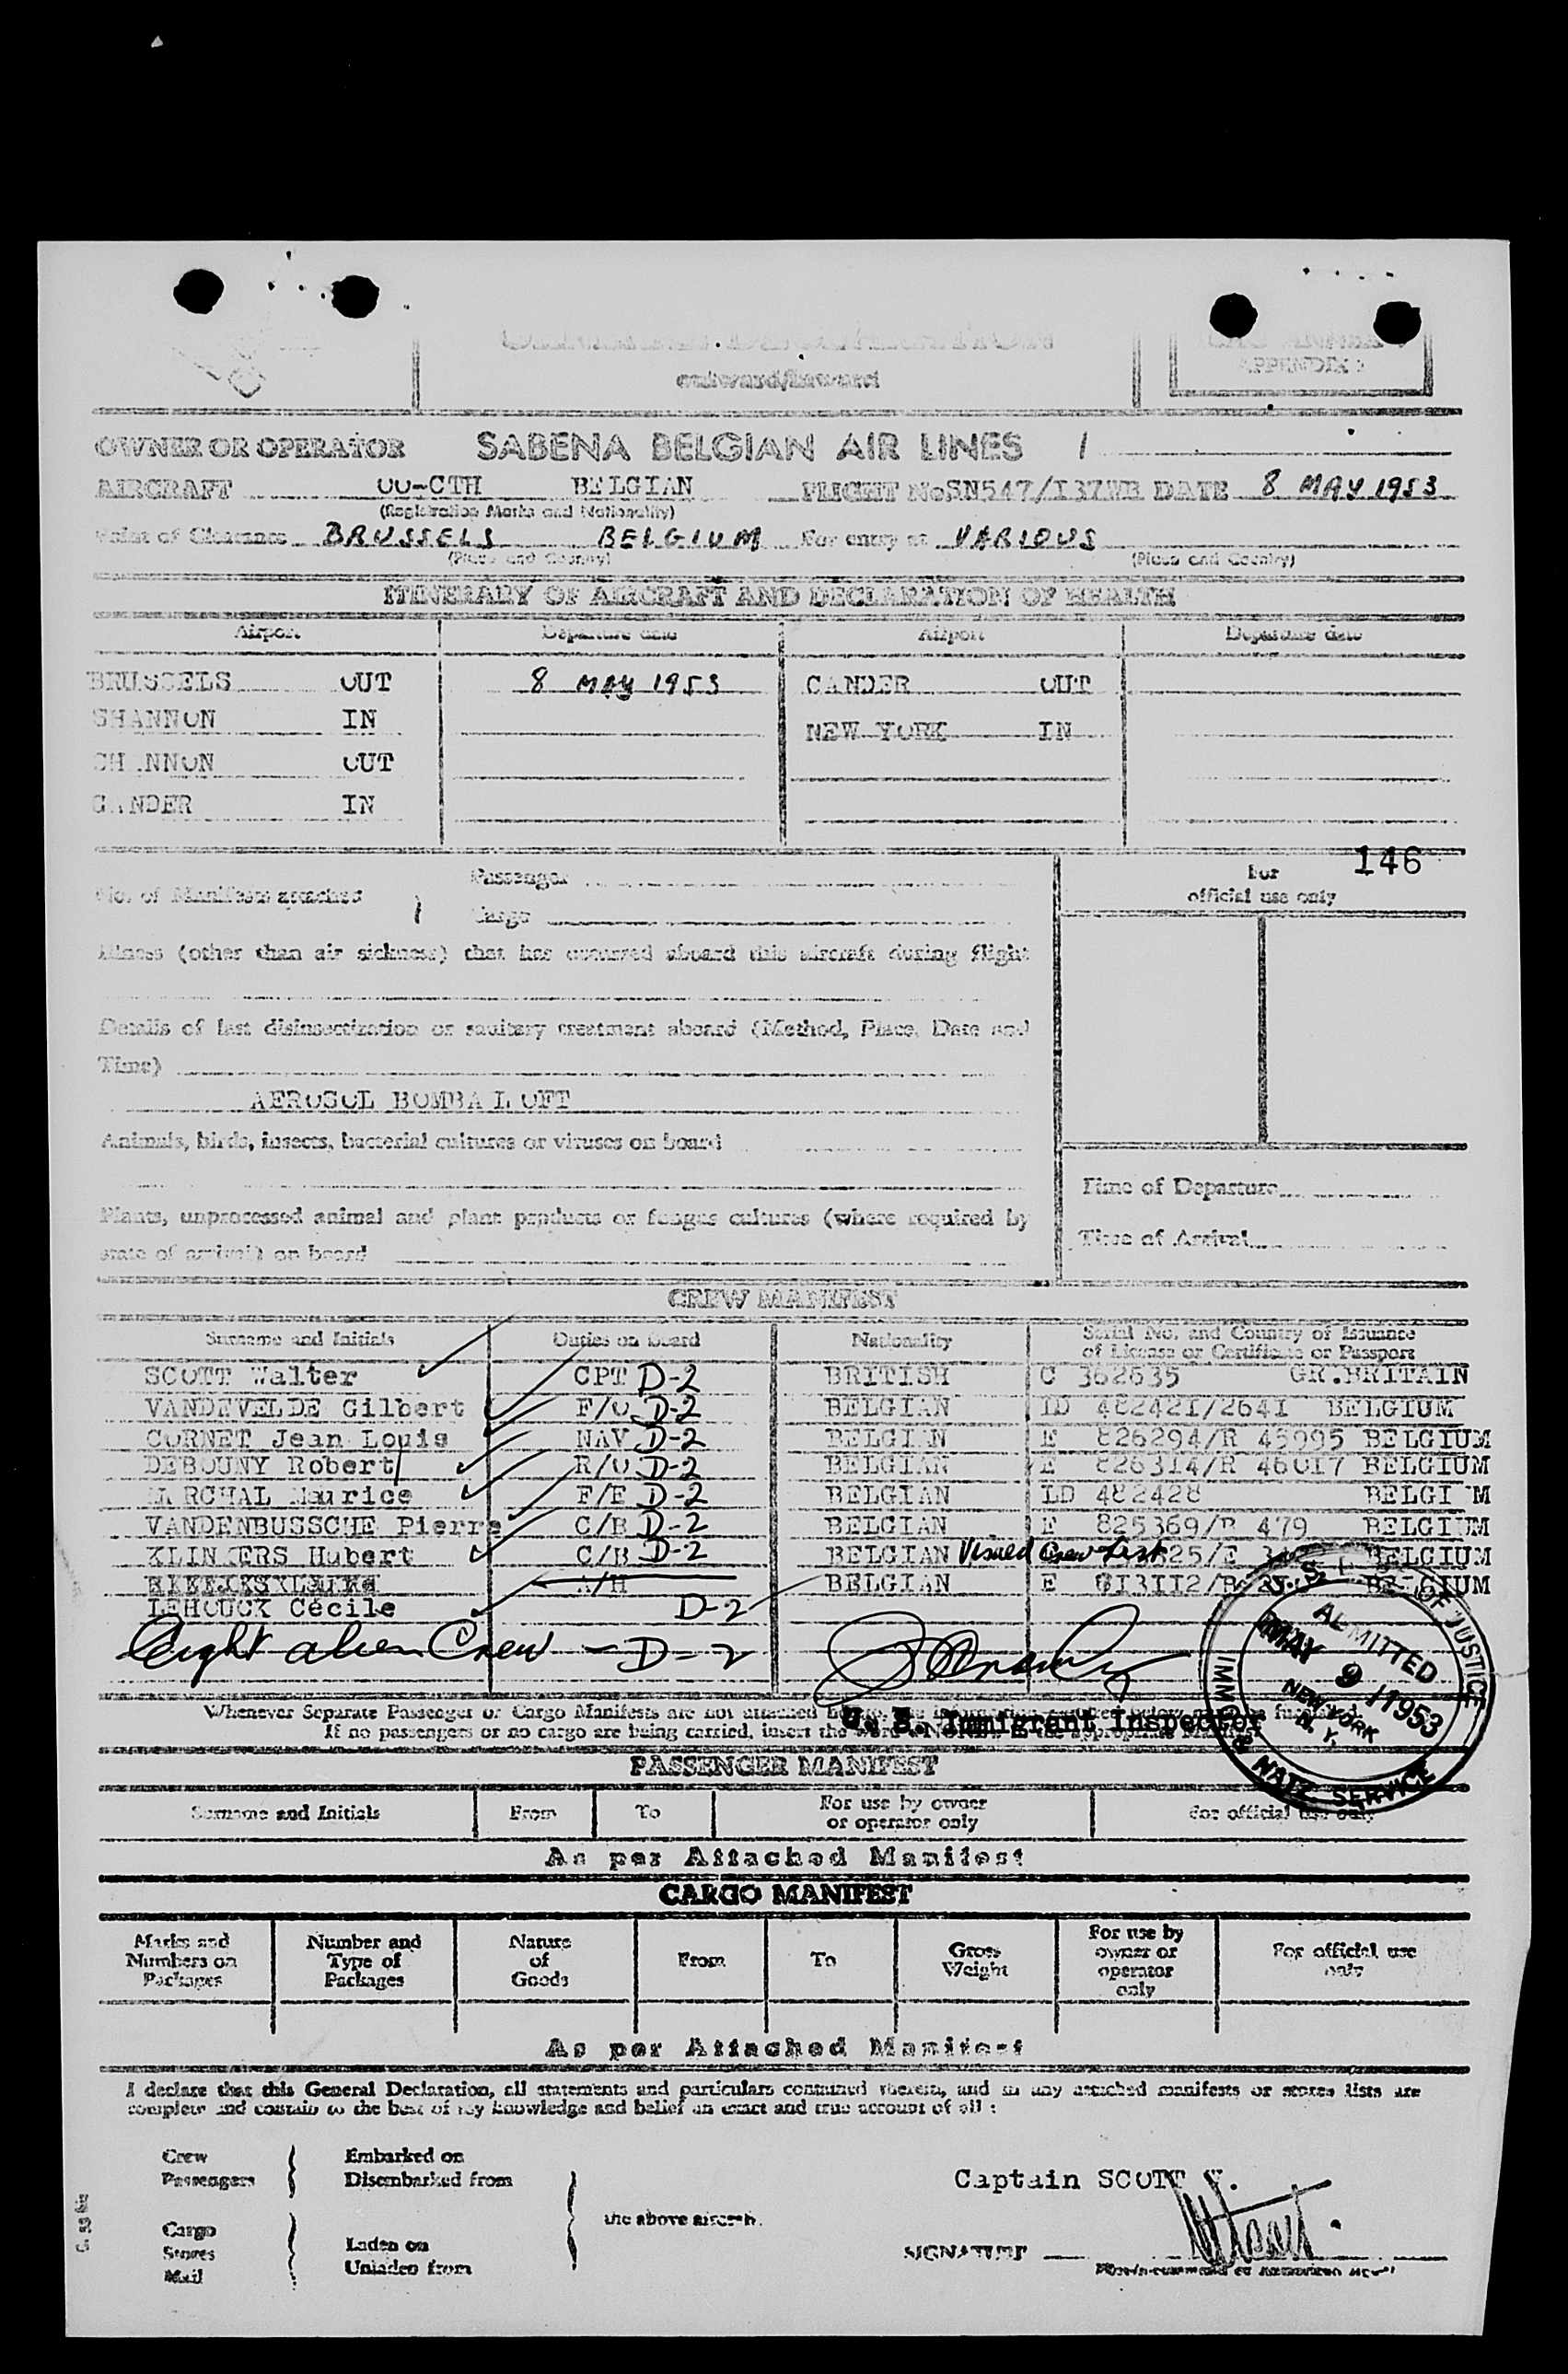 outward/inward
APPENDIX
OWNER OR OPERATOR SABENA BELGIAN AIR LINES /
AIRCRAFT OO-CTH BELGIAN FLIGHT No SN547/137WB DATE 8 MAY 1953
(Registration Marks and Nationality)
Point of Clearance BRUSSELS BELGIUM For entry at VARIOUS
(Place and Country) (Place and Country)
ITINERARY OF AIRCRAFT AND DECLARATION OF HEALTH
Airport Departure date Airport Departure date
BRUSSELS OUT 8 MAY 1953 GANDER OUT
SHANNON IN NEW YORK IN
SH NNON OUT
GANDER IN
146
No. of Manifests attached Passenger For
Cargo official use only
Illness (other than air sickness) that has occurred aboard this aircraft during flight
Details of last disinsectization or sanitary treatment aboard (Method, Place, Date and
Time)
AEROSOL BOMBA L OFT
Animals, birds, insects, bacterial cultures or viruses on board
Time of Departure
Plants, unprocessed animal and plant products or fungus cultures (where required by
Time of Arrival
state of arrival) on board
CREW MANIFEST
Surname and Initials Duties on board Nationality Serial No. and Country of Issuance
of License or Certificate or Passport
SCOTT Walter CPT D-2 BRITISH C 362635 GR.BRITAIN
VANDEVELDE Gilbert F/O D-2 BELGIAN ID 482421/2641 BELGIUM
CORNET Jean Louis NAV D-2 BELGI N E 826294/R 45995 BELGIUM
DEBOUNY Robert R/O D-2 BELGIAN E 826314/R 46017 BELGIUM
M RCHAL Maurice F/E D-2 BELGIAN ID 482428 BELGI M
VANDENBUSSCHE Pierre C/R D-2 BELGIAN E 825369/R 479 BELGIUM
KLINKERS Hubert C/R D-2 BELGIAN Visaed Crew List BELGIUM
A/H BELGIAN E 813112/R BELGIUM
LEHOUCK Cécile D-2
Eight alien Crew - D-2
U. S. Immigrant Inspector
U.S. DEPT. OF JUSTICE
ADMITTED
MAY 9 1953
NEW YORK
N. Y.
IMMIG & NATZ. SERVICE
Whenever Separate Passenger or Cargo Manifests are not attached
If no passengers or no cargo are being carried, insert the
PASSENGER MANIFEST
Surname and Initials From To For use by owner For official use only
or operator only
As per Attached Manifest
CARGO MANIFEST
Marks and Number and Nature From To Gross For use by For official use
Numbers on Type of of Weight owner or only
Packages Packages Goods operator
only
As per Attached Manifest
I declare that this General Declaration, all statements and particulars contained therein, and in any attached manifests or stores lists are
complete and contain to the best of my knowledge and belief an exact and true account of all :
Crew Embarked on
Passengers Disembarked from
Captain SCOTT W.
the above aircraft.
Cargo
Stores Laden on
Mail Unladen from
SIGNATURE